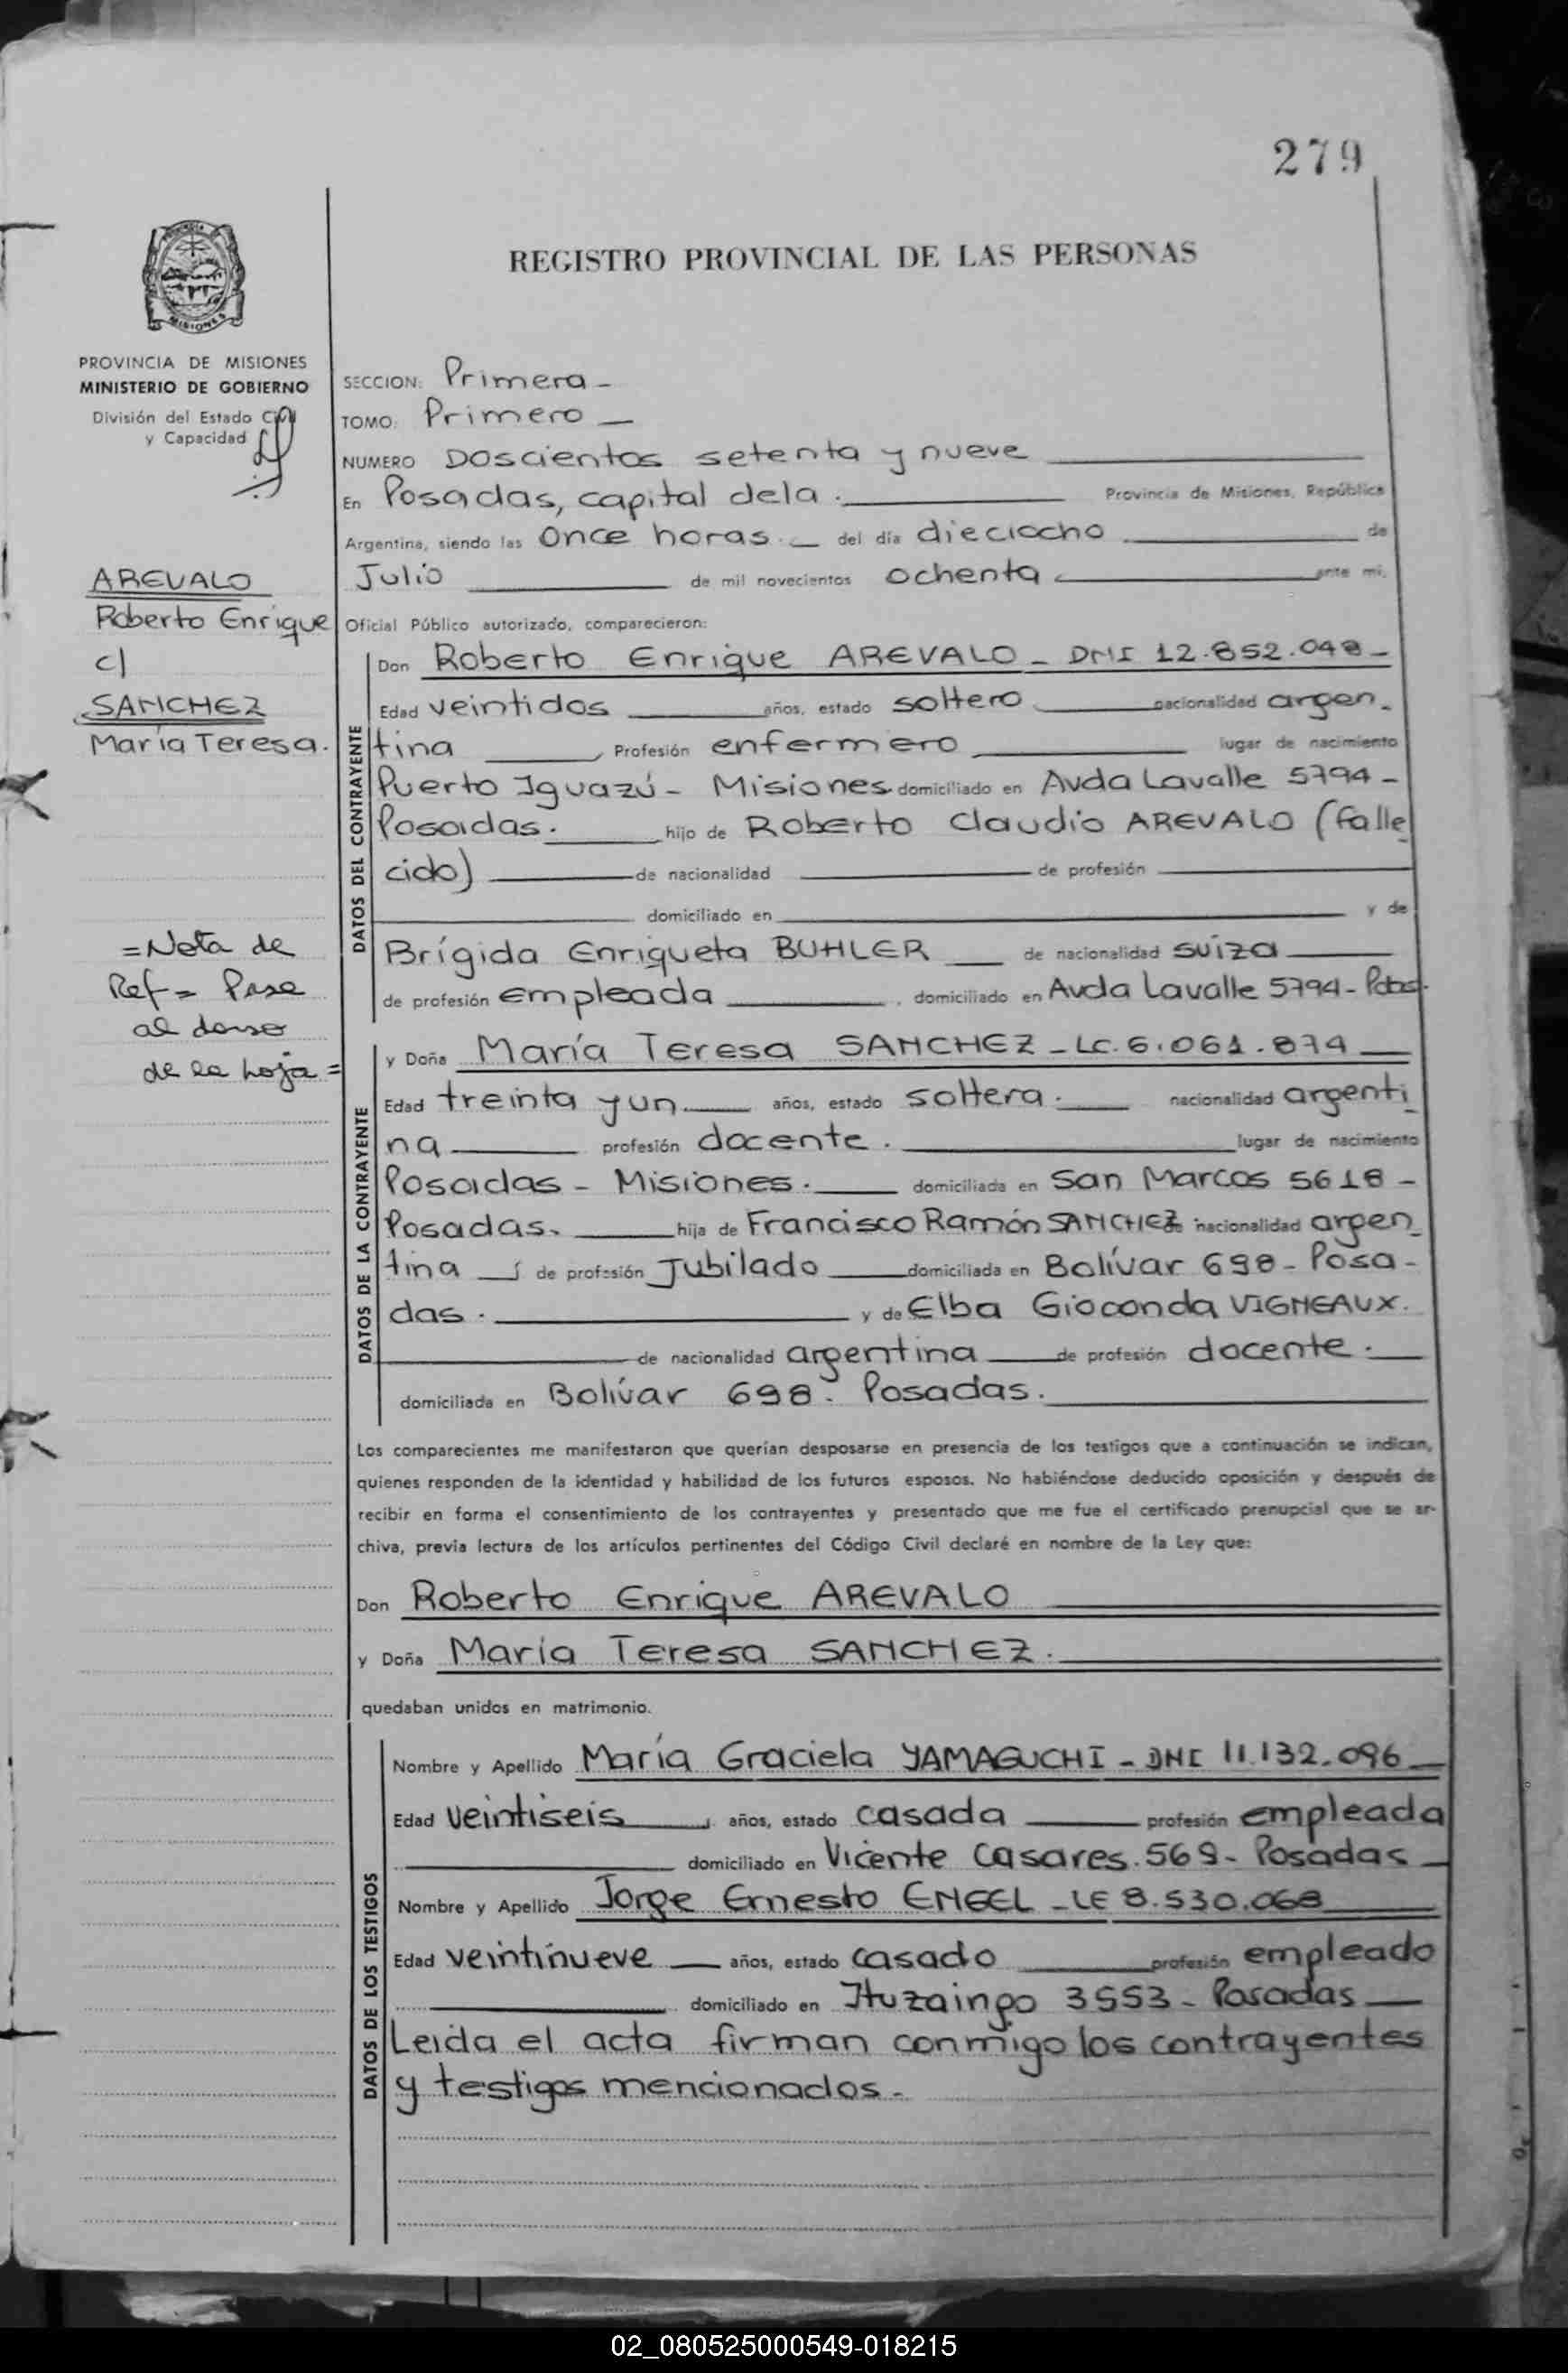 279
REGISTRO PROVINCIAL DE LAS PERSONAS
MISIONES
PROVINCIA DE MISIONES
MINISTERIO DE GOBIERNO
División del Estado Civil
y Capacidad
AREVALO
Roberto Enrique
c/
SANCHEZ
María Teresa.
=Nota de
Ref= Pase
al dorso
de la hoja=
SECCION: Primera-
TOMO: Primero
NUMERO Doscientos setenta y nueve
En Posadas, capital dela. Provincia de Misiones, República
Argentina, siendo las Once horas. del día dieciocho de
Julio de mil novecientos ochenta ante mi,
Oficial Público autorizado, comparecieron:
DATOS DEL CONTRAYENTE
Don Roberto Enrique AREVALO - DNI 12.852.048-
Edad veintidos años, estado soltero nacionalidad argen-
tina, Profesión enfermero lugar de nacimiento
Puerto Iguazú- Misiones. domiciliado en Avda Lavalle 5794-
Posadas. hijo de Roberto Claudio AREVALO (falle
cido) de nacionalidad de profesión
domiciliado en y de
Brígida Enriqueta BUHLER de nacionalidad suiza
de profesión empleada, domiciliado en Avda Lavalle 5794- Pdas.
DATOS DE LA CONTRAYENTE
y Doña María Teresa SANCHEZ - LC. 6.061.874
Edad treinta y un años, estado soltera. nacionalidad argenti_
na profesión docente. lugar de nacimiento
Posadas - Misiones. domiciliada en San Marcos 5618-
Posadas. hija de Francisco Ramón SANCHEZ de nacionalidad argen_
tina, de profesión Jubilado domiciliada en Bolívar 698- Posa-
das. y de Elba Gioconda VIGNEAUX.
de nacionalidad argentina de profesión docente.
domiciliada en Bolívar 698. Posadas.
Los comparecientes me manifestaron que querían desposarse en presencia de los testigos que a continuación se indican,
quienes responden de la identidad y habilidad de los futuros esposos. No habiéndose deducido oposición y después de
recibir en forma el consentimiento de los contrayentes y presentado que me fue el certificado prenupcial que se ar-
chiva, previa lectura de los artículos pertinentes del Código Civil declaré en nombre de la Ley que:
Don Roberto Enrique AREVALO
y Doña María Teresa SANCHEZ.
quedaban unidos en matrimonio.
DATOS DE LOS TESTIGOS
Nombre y Apellido María Graciela YAMAGUCHI - DNI 11.132.096
Edad veintiseis, años, estado casada profesión empleada
domiciliado en Vicente Casares 569- Posadas
Nombre y Apellido Jorge Ernesto ENGEL - LE 8.530.068
Edad veintinueve años, estado casado profesión empleado
domiciliado en Ituzaingo 3553- Posadas
Leida el acta firman conmigo los contrayentes
y testigos mencionados-
02_080525000549-018215